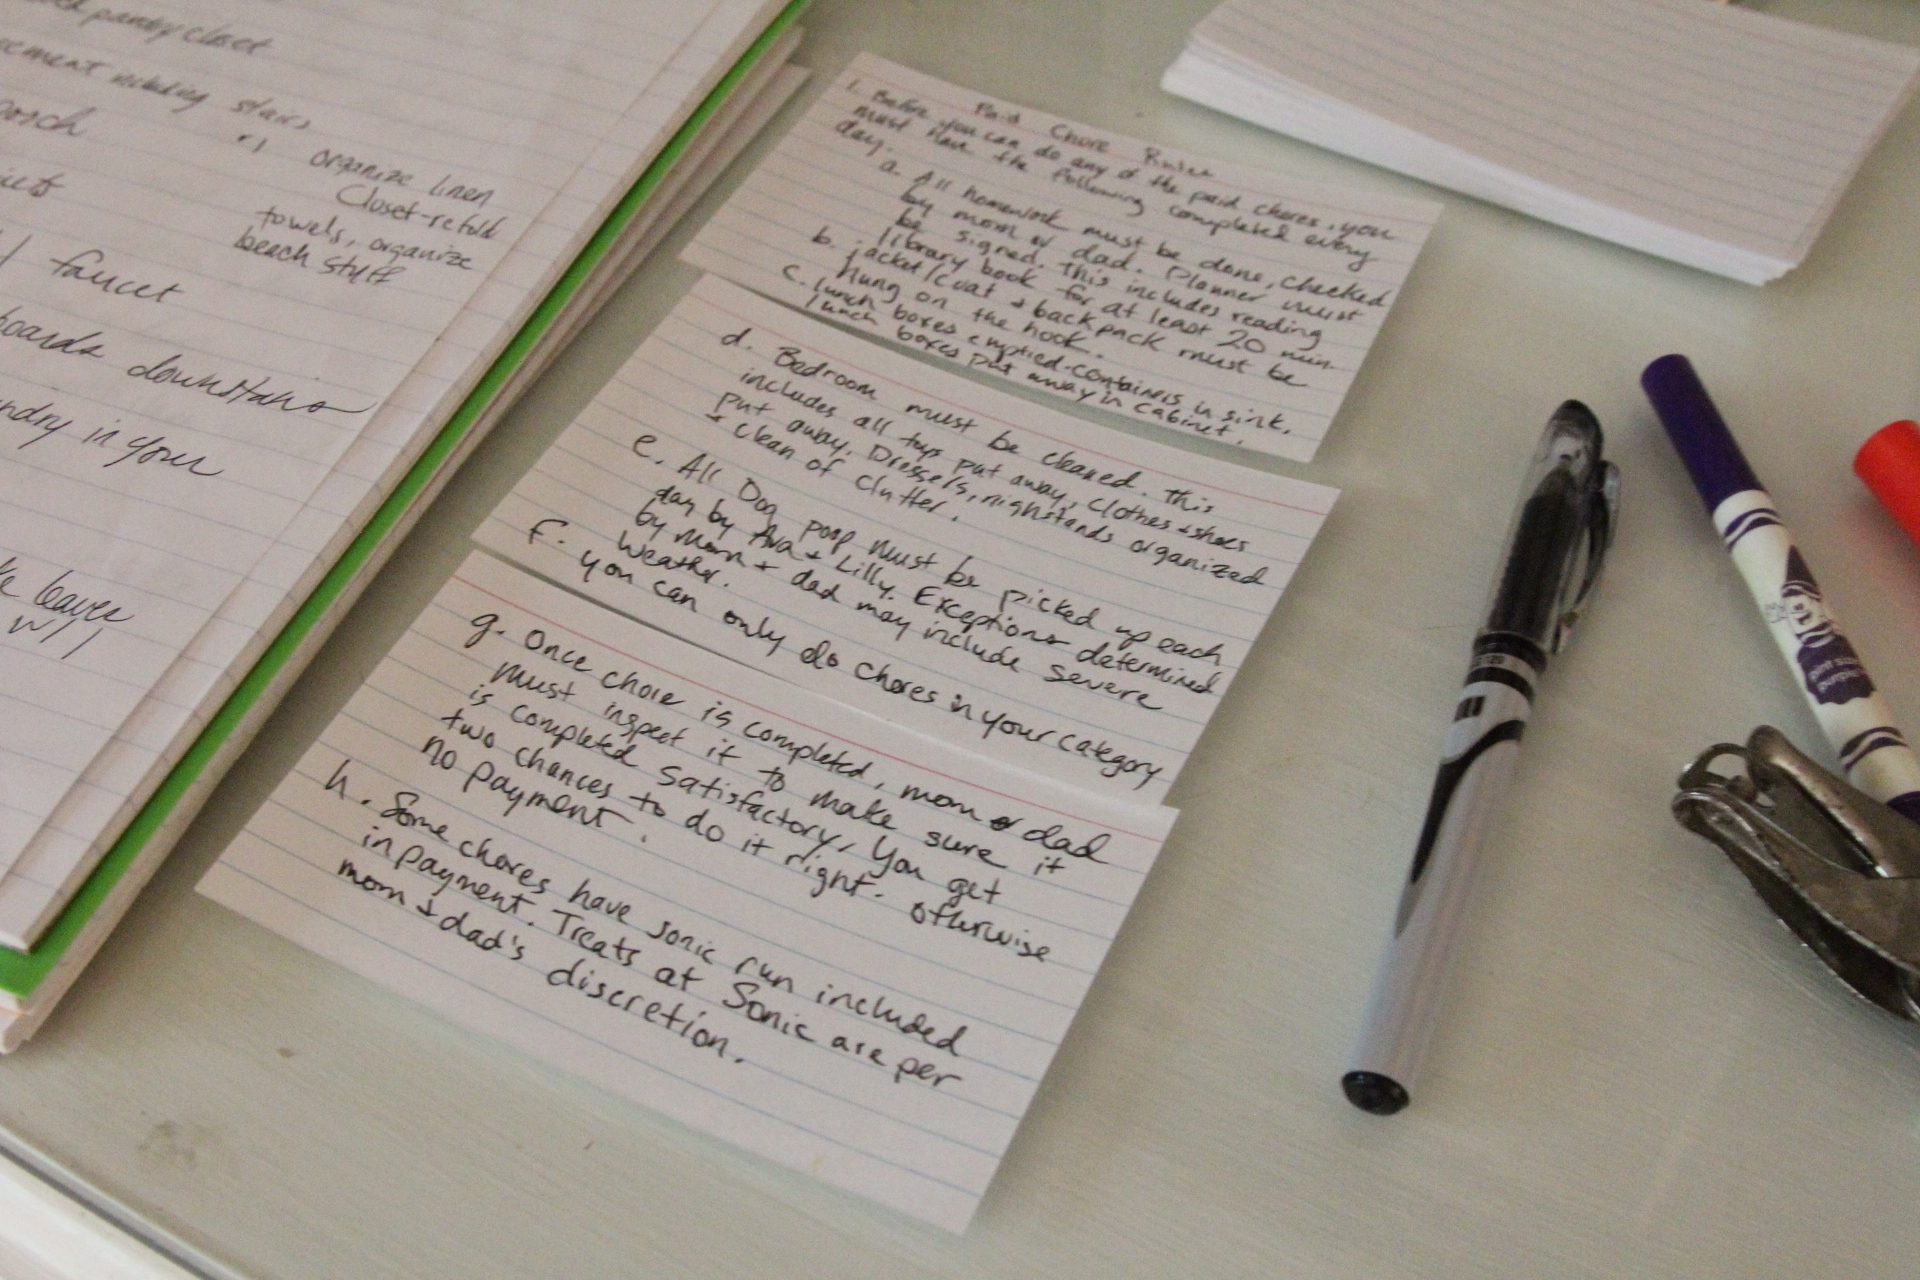 pantry closet
including stairs
porch
organize linen
closet-refold
towels, organize
beach stuff
faucet
boards downstairs
in your
leaves
w/1
Paid Chore Rules
1. Before you can do any of the paid chores, you
must have the following completed every
day.
a. All homework must be done, checked
by mom or dad. Planner must
be signed. This includes reading
library book for at least 20 min.
b. jacket/coat + backpack must be
hung on the hook.
c. lunch boxes emptied-containers in sink,
lunch boxes put away in cabinet.
d. Bedroom must be cleaned. This
includes all toys put away, clothes + shoes
put away. Dressers, nightstands organized
+ clean of clutter.
e. All Dog poop must be picked up each
day by Ava + Lilly. Exceptions determined
by Mom + dad may include severe
weather.
f. you can only do chores in your category
g. Once chore is completed, mom or dad
must inspect it to make sure it
is completed satisfactory, you get
two chances to do it right. Otherwise
no payment.
h. Some chores have sonic run included
in payment. Treats at Sonic are per
mom + dad's discretion.